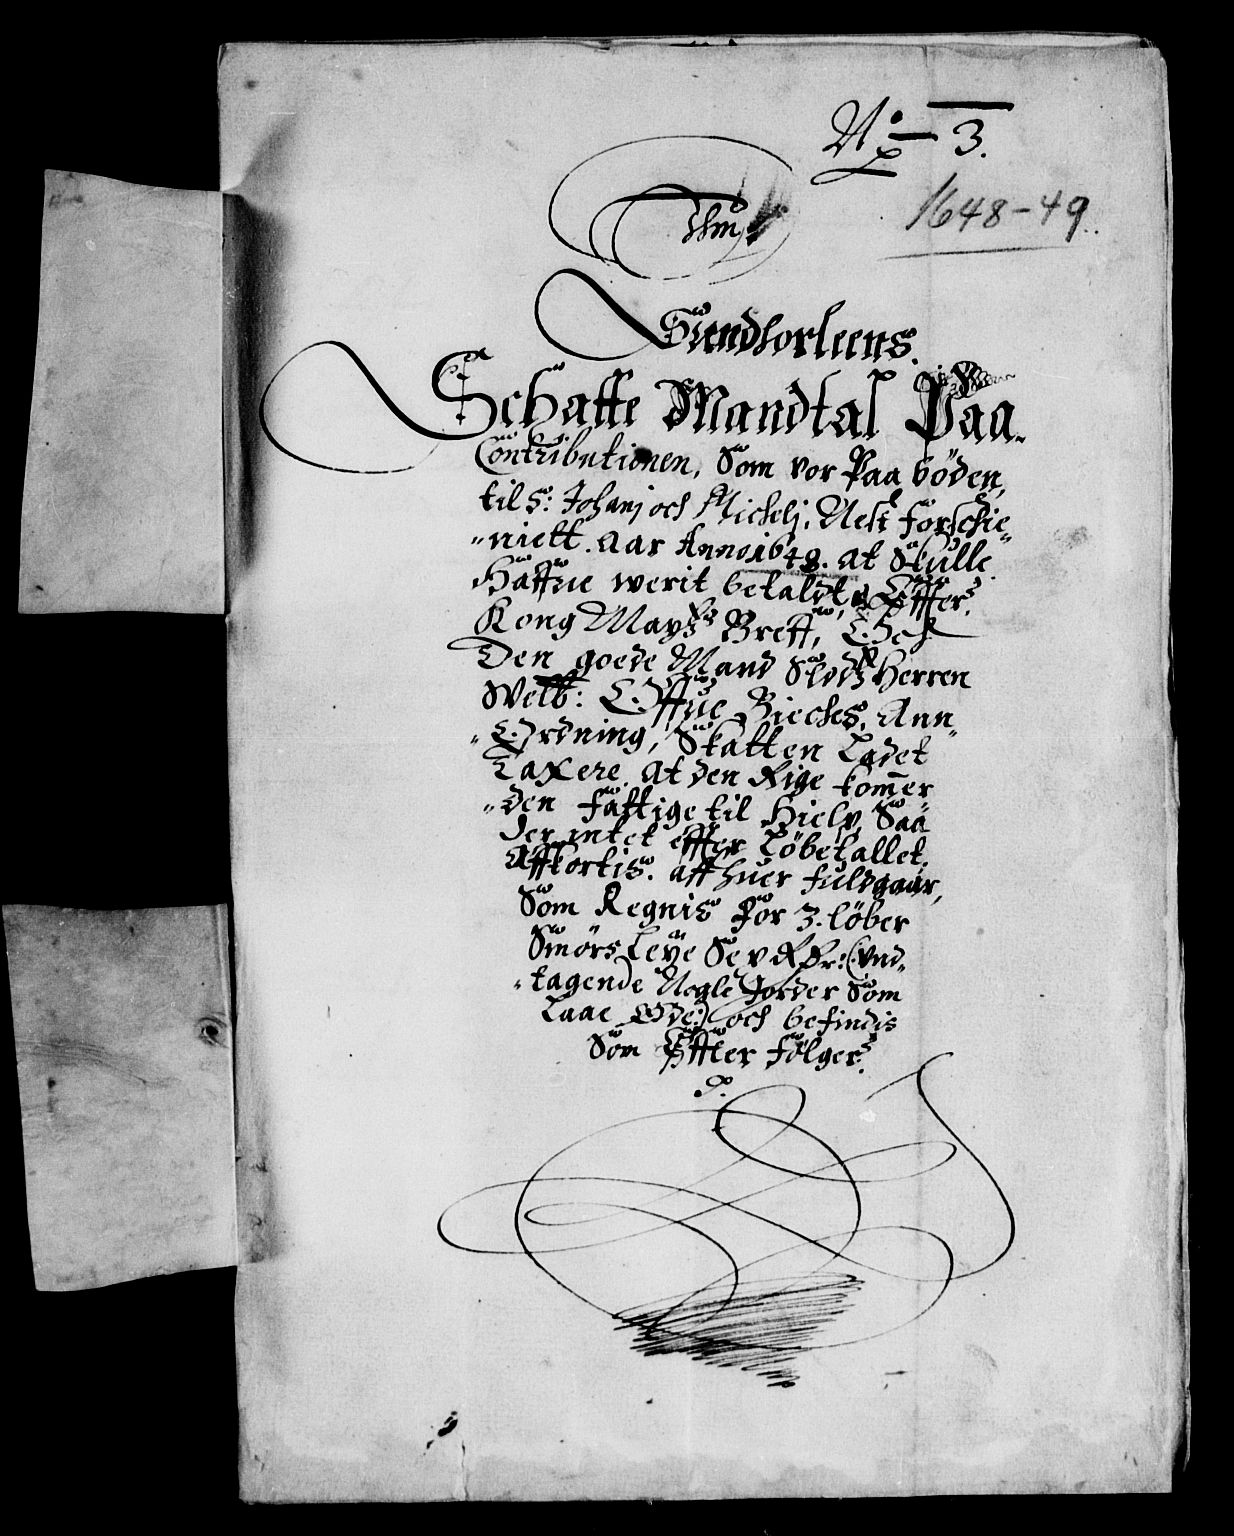 No 3.
1648-49.
Sundhorleens.
Schatte Mandtal Paa
Contributionen, Som vor Paa böden,
til S: Johanj och Michelj, Nest forschie-
niett. aar Anno 1648. at Skulle
Haffue werit betaldt, Effter
Kong Maytz Breff, Och
Den goede Mand Slodtz Herren
Welb: Offue Bieches, Ann-
Ordning, Skatten Ladet
Taxere. At den Rige kommer
den fattige til Hielp, Saa
der intet effter Löbetallet
Affkortis. aff huer fuldgaar,
Som Regnis for 3. löber
Smörs Leye Sex Rdr: (und-
tagende Nogle Jorder Som
Laae Øde:) och befindis
Som Effter fölger.